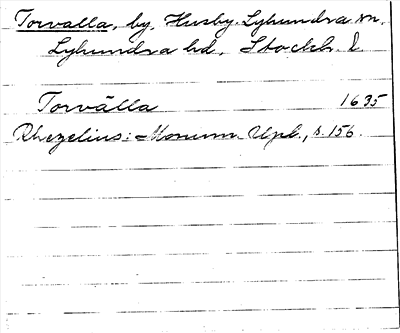 Torvalla, by, Husby-Lyhundra sn,
Lyhundra hd, Stockh. l
Torvälla 1635
Rhezelius: Monum. Upl., s. 156.